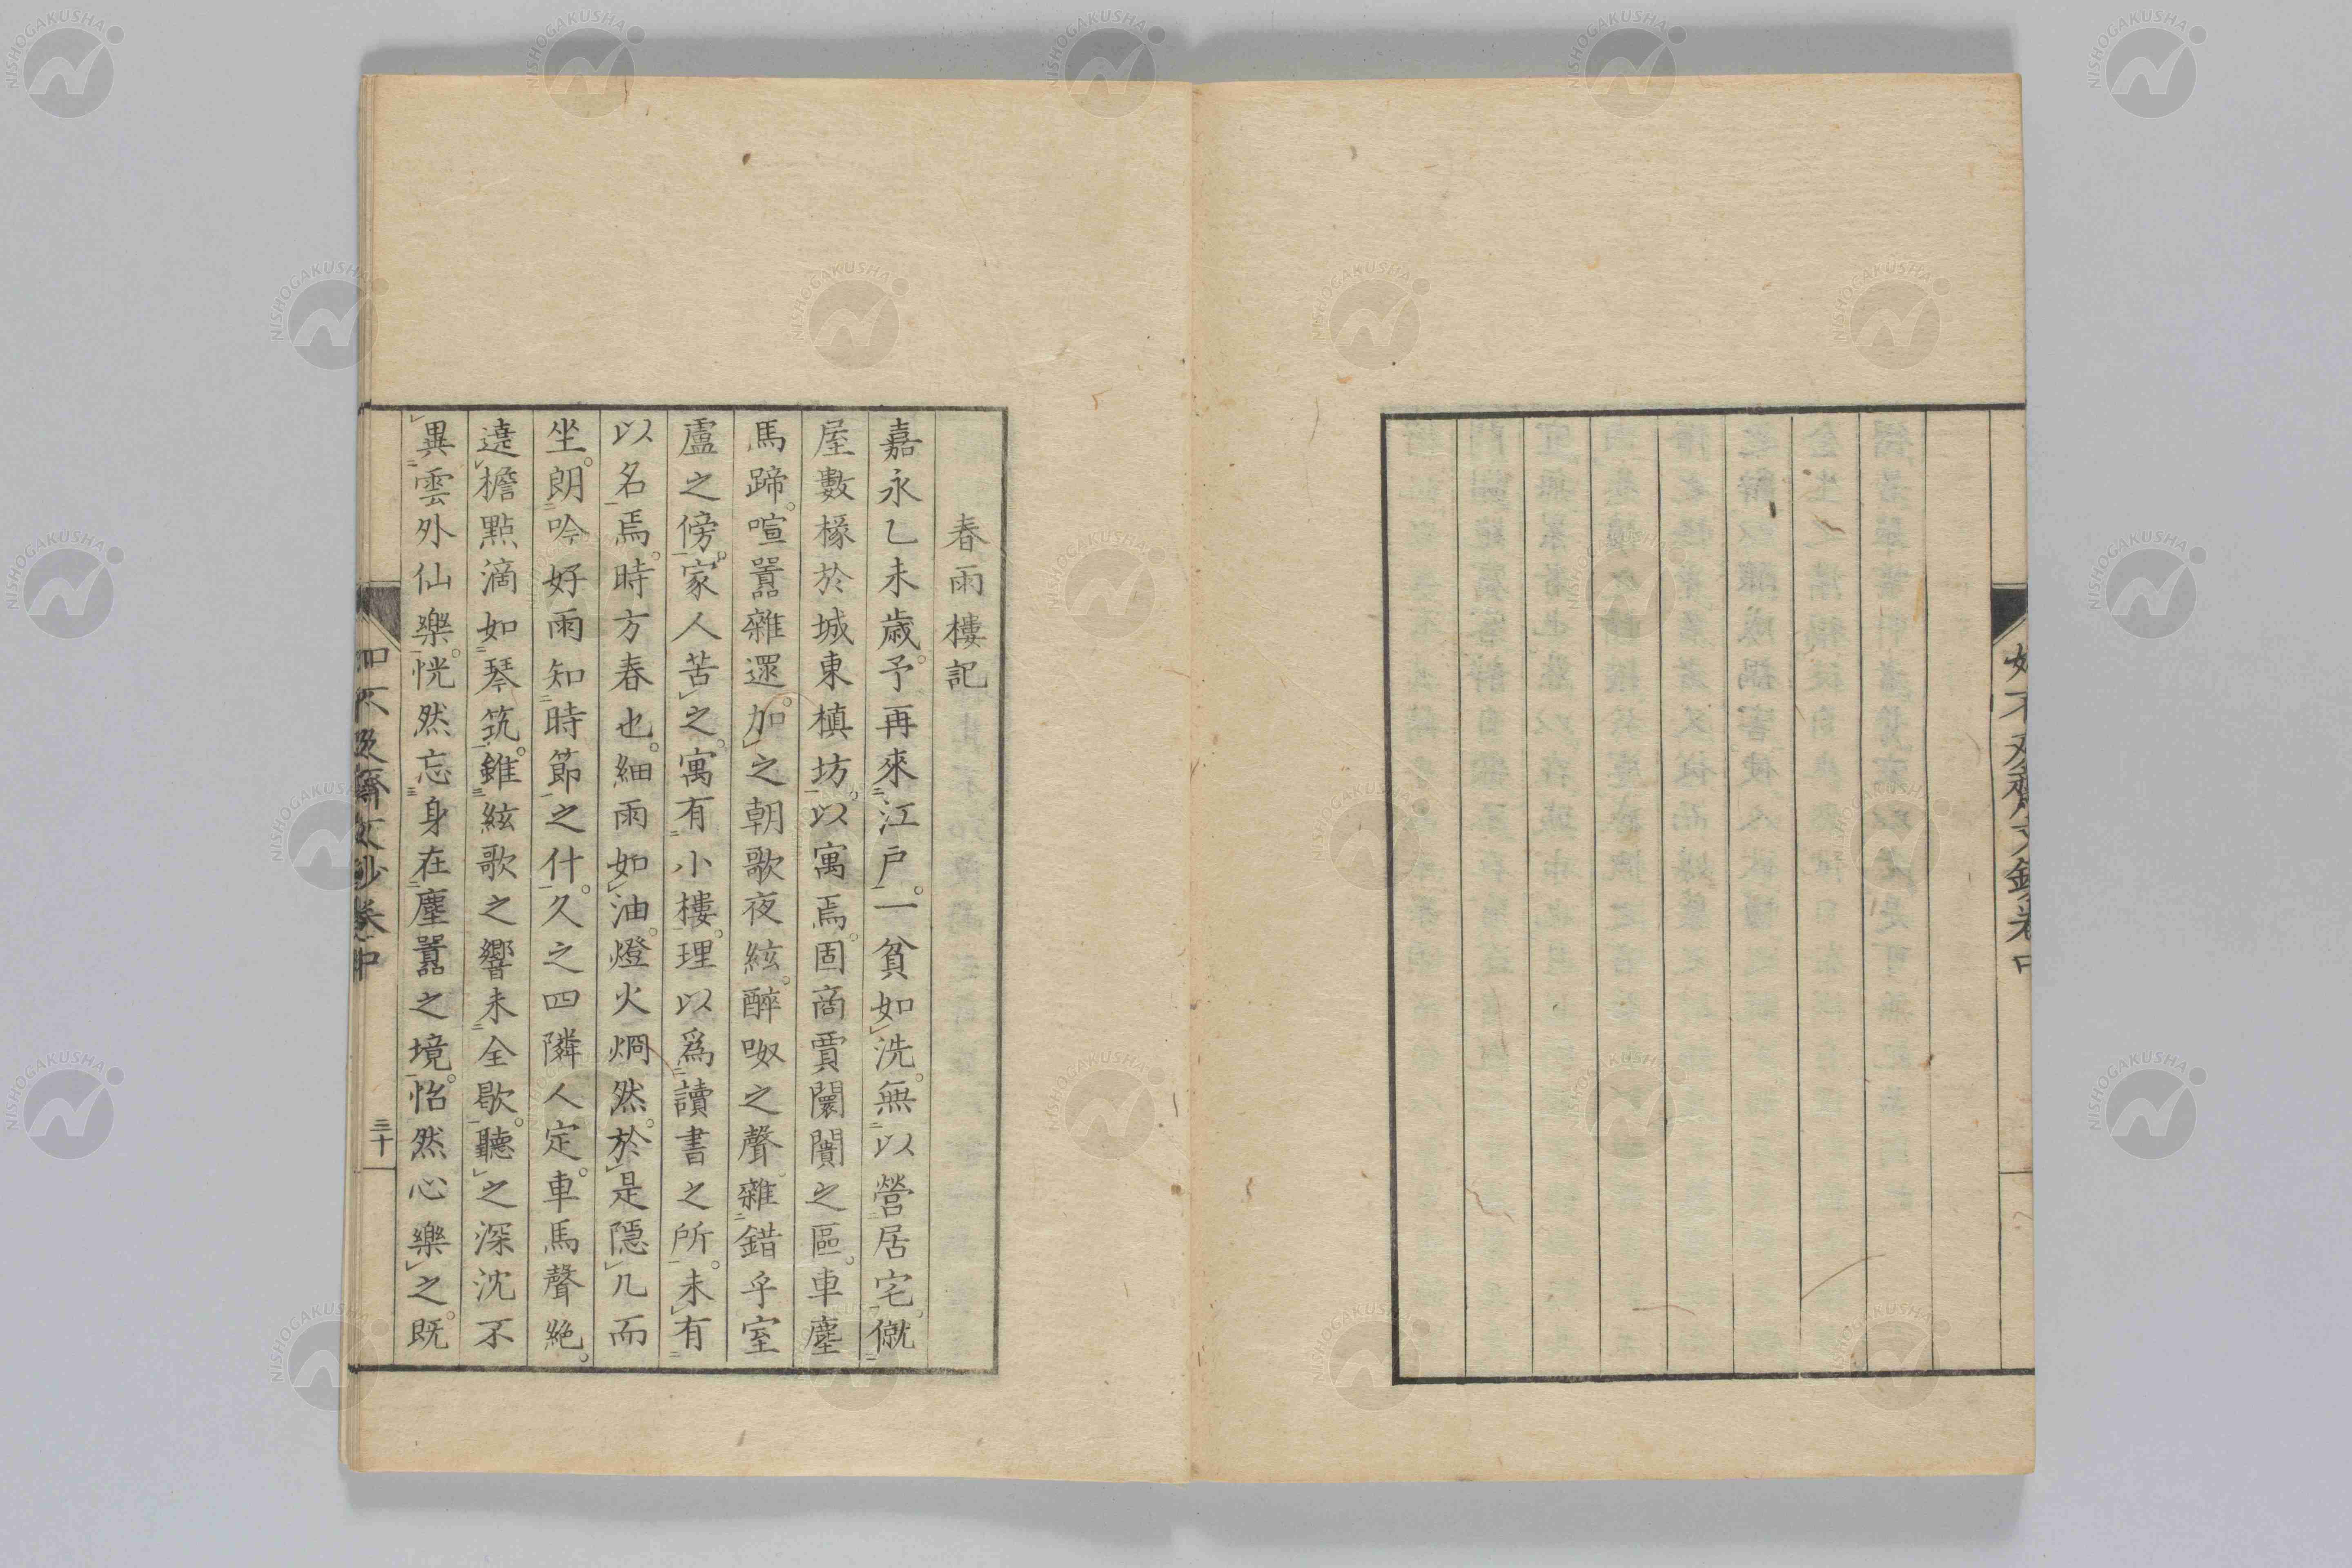 春雨樓記
嘉永乙未歲。予再來江戸。一貧如洗。無以營居宅、僦
屋數椽於城東槙坊。以寓焉。固商賈闤闠之區。車塵
馬蹄。喧囂雜遝。加之朝歌夜絃。醉呶之聲。雜錯乎室
盧之傍。家人苦之。寓有小樓。理以爲讀書之所。未有
以名焉。時方春也。細雨如油。燈火烱然。於是隱几而
坐。朗吟好雨知時節之什。久之四隣人定。車馬聲絶。
遶檐點滴如琴筑。錐絃歌之響未全歇。聽之深沈不
異雲外仙樂。恍然忘身在塵囂之境。怡然心樂之。既
如不及齋文鈔卷中
三十
NISHOGAKUSHA